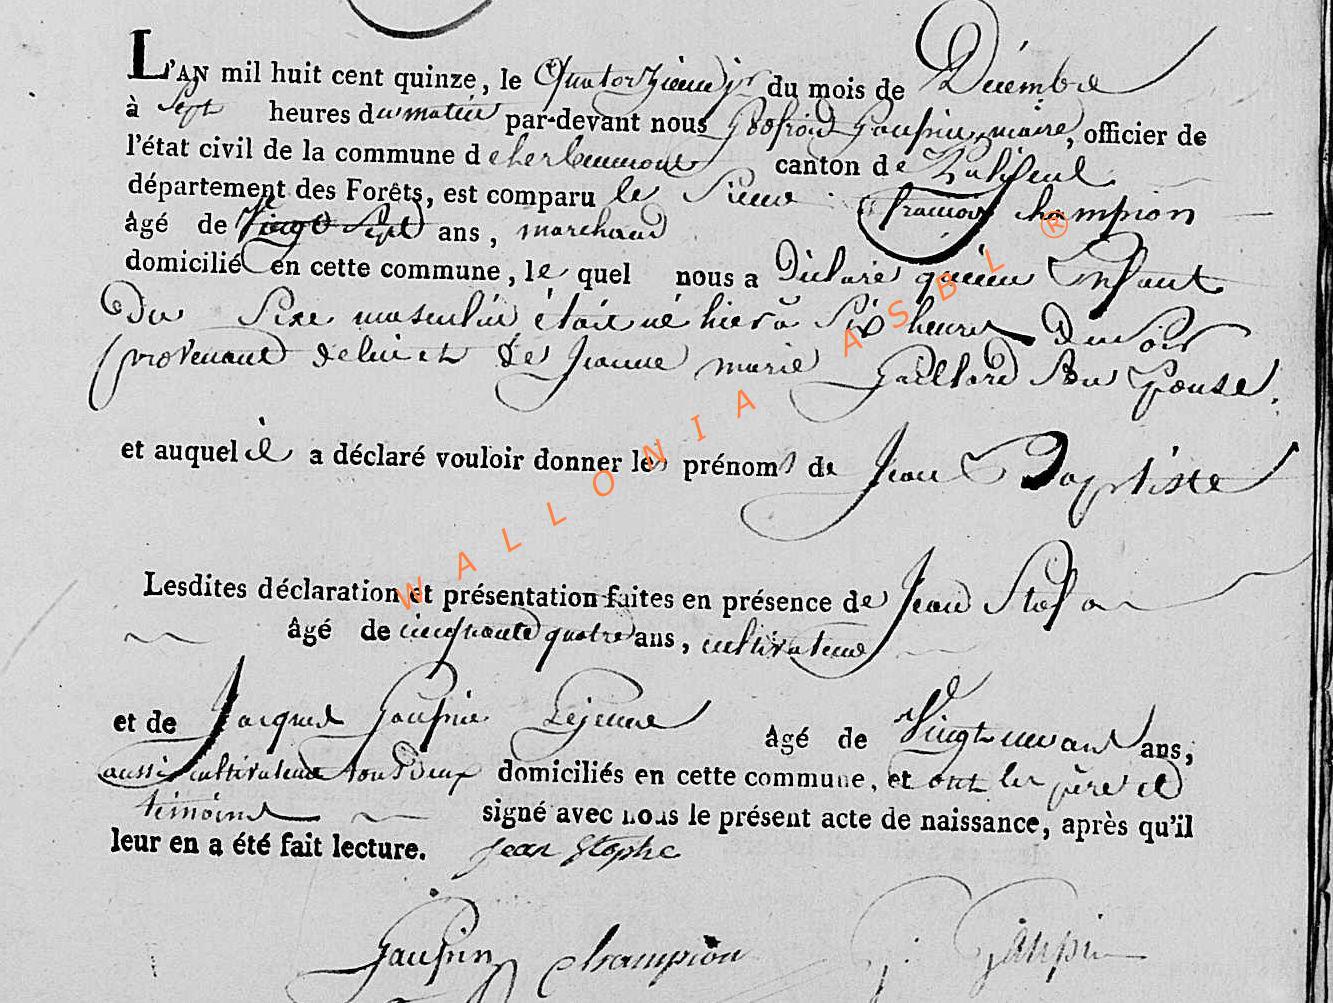 L'AN mil huit cent quinze, le Quatorzieme jr du mois de Décembre
à Sept heures du matin par-devant nous Godfroid Gaupin, maire, officier de
l'état civil de la commune d'herbeumont canton de Paliseul
département des Forêts, est comparu le Sieur françois Champion
âgé de Vingt Sept ans, marchand
domicilié en cette commune, le quel nous a Déclaré qu'un Enfant
Du Sexe masculin, était né hier à Six heures Du Soir
provenant de lui et de Jeanne marie Gaillard Son Epouse.
et auquel il a déclaré vouloir donner les prénoms de Jean Baptiste
Lesdites déclaration et présentation faites en présence de Jean
âgé de cinquante quatre ans, cultivateur
et de Jacques Gaupin Lejeune âgé de Vingt ans,
aussi cultivateur tous Deux domiciliés en cette commune, et ont les père et
témoins signé avec nous le présent acte de naissance, après qu'il
leur en a été fait lecture. jean Stophe
Gaupin Champion j. Gaupin
WALLONIA ASBL ®